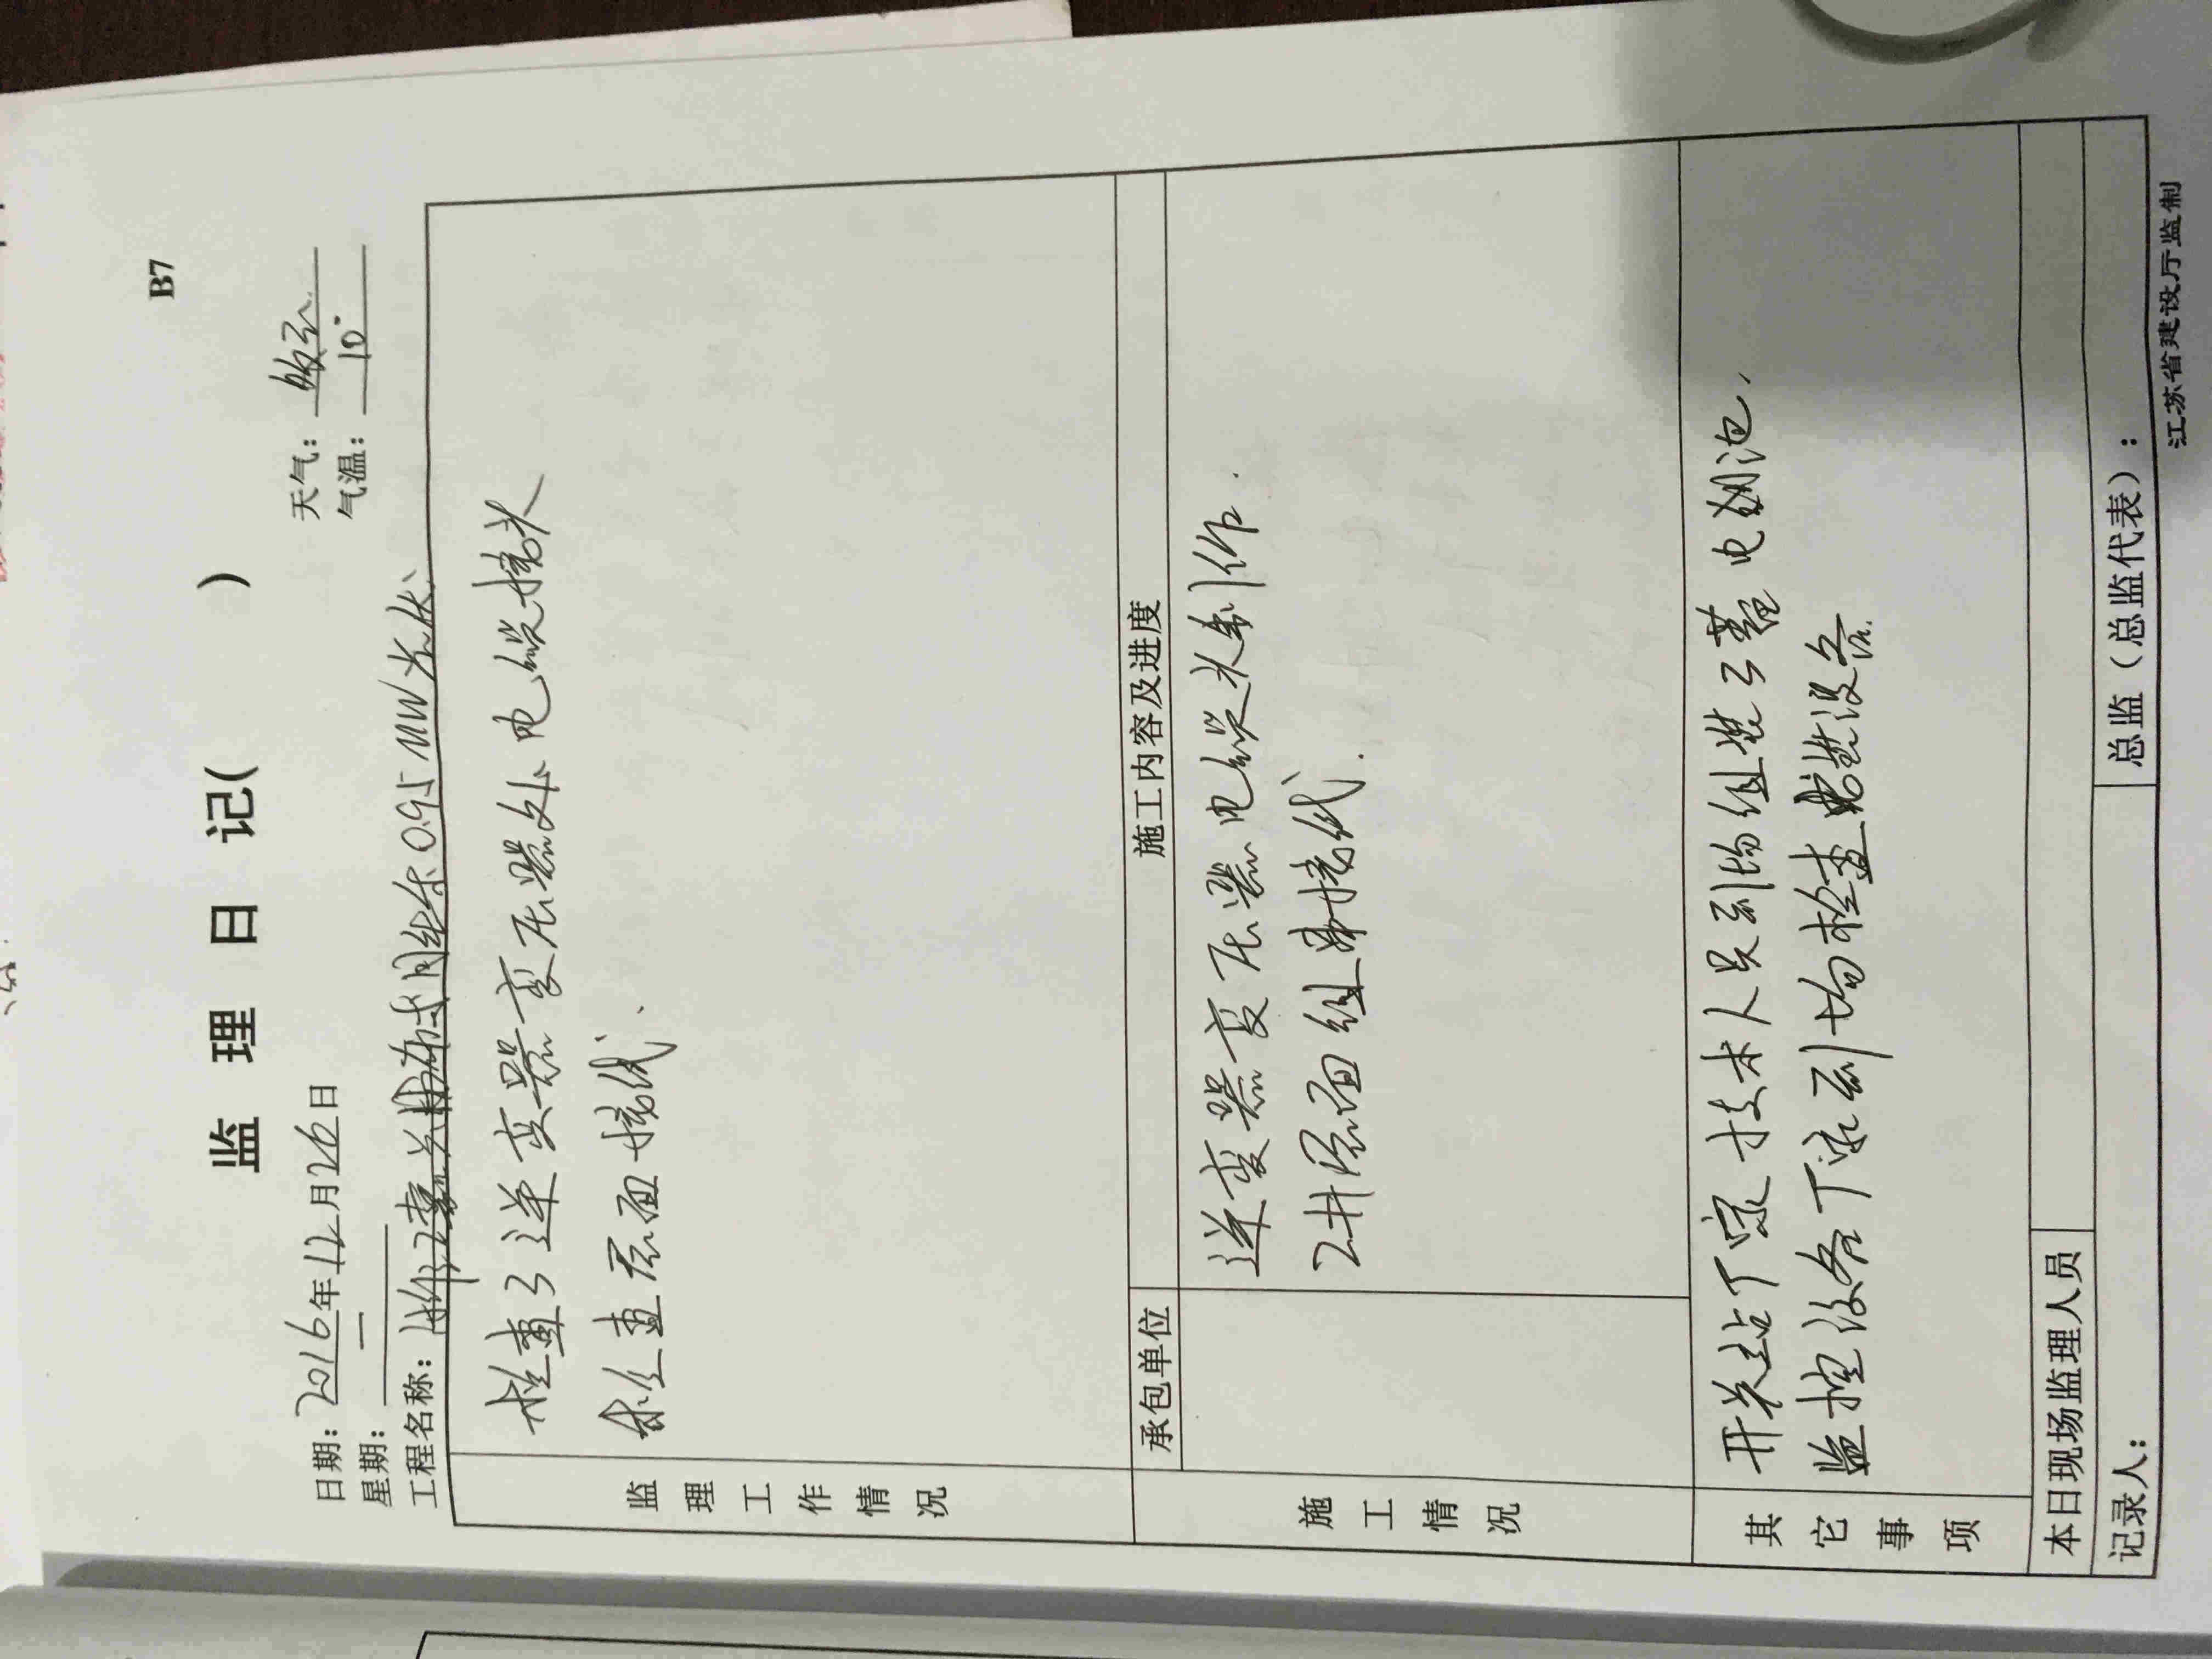 B7
监 理 日 记( )
日期：2016年12月26日 天气：
星期：一 气温：10°
工程名称：0.95MW光伏
监理工作情况
检查了逆变器变压器处电缆接头
检查屋面接线.
施工情况
承包单位 施工内容及进度
逆变器变压器电缆头制作.
2#屋面组串接线.
其它事项
开关站厂家技术人员到场组装了蓄电池.
监控设备厂家到场检查设备
本日现场监理人员
记录人： 总监（总监代表）：
江苏省建设厅监制